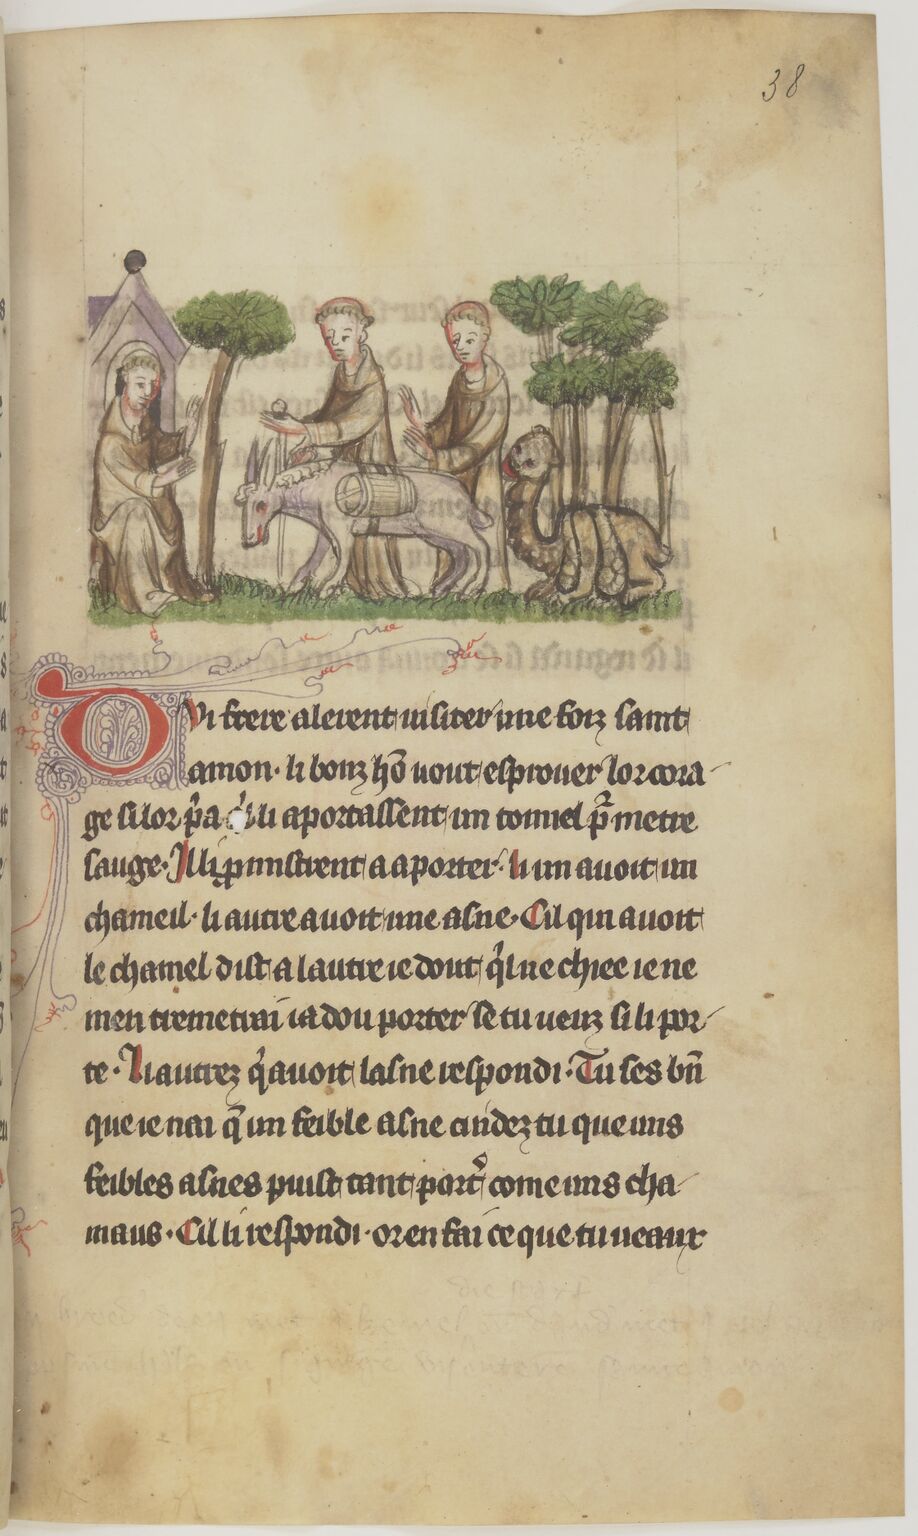 38
Dvi frere alerent uisiter une foiz saint
amon · li bonz hō uout esprouer lor cora
ge si lor p̄a q̄l li aportassent un tonnel pͣ metre
sauge · Jlli ꝓmistrent a aporter · li un auoit un
chameil · li autre auoit une asne · Cil qui auoit
le chamel dist a lautre ie dout q̄l ne chiee ie ne
men tremetrai ia dou porter se tu ueuz si li por
te · Li autrez q̄ auoit lasne respondi · Tu ses bn̄
que ie nai q̄ un feible asne cuidez tu que uns
feibles asnes puist tant port᷑ come uns cha
maus · Cil li respondi · or en fai ce que tu ueaux